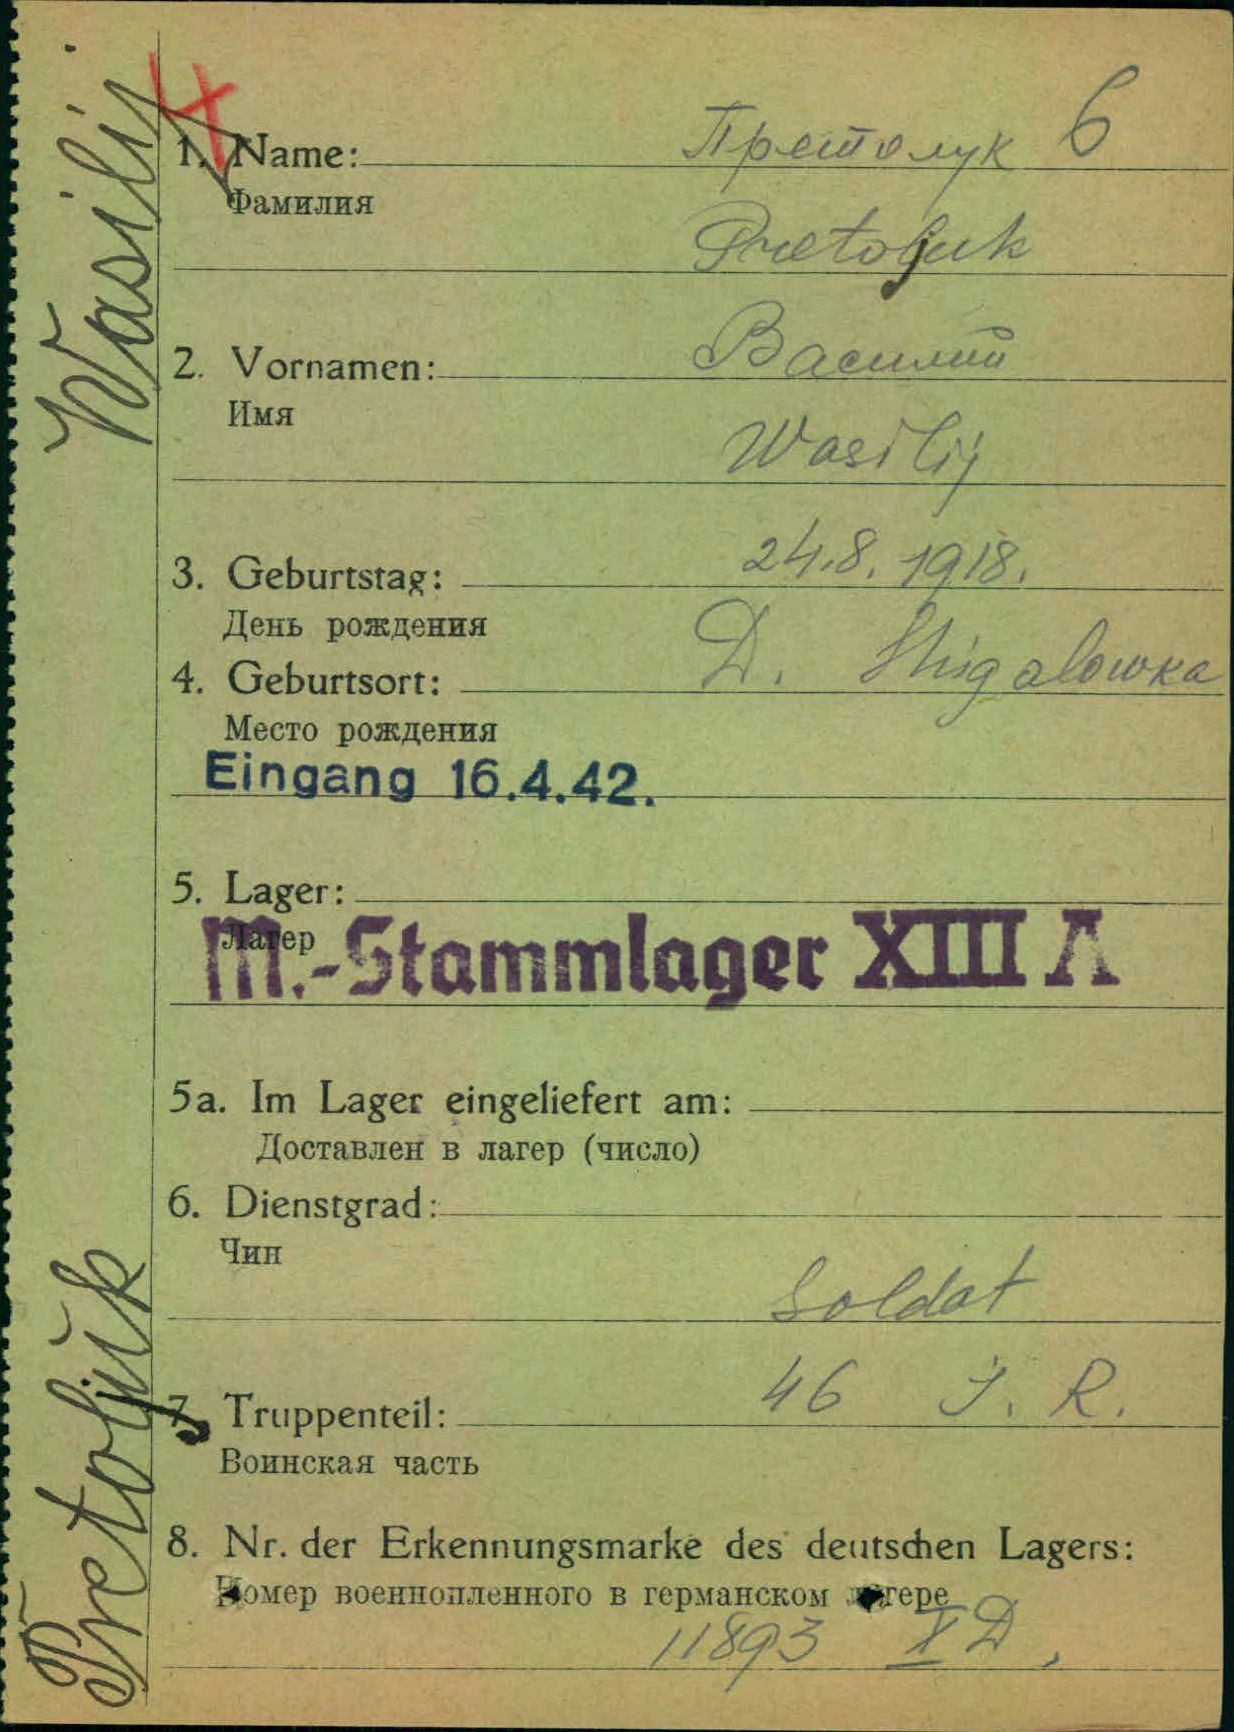 Wasilij
Pretoljuk
1. Name: Претолук 6
Фамилия
Pretoljuk
2. Vornamen: Василий
Имя
Wasilij
3. Geburtstag: 24.8.1918.
День рождения
4. Geburtsort: D. Shigalowka
Место рождения
Eingang 16.4.42.
5. Lager:
Лагер
M.-Stammlager XIII A
5a. Im Lager eingeliefert am:
Доставлен в лагер (число)
6. Dienstgrad:
Чин
Soldat
7. Truppenteil: 46 J. R.
Воинская часть
8. Nr. der Erkennungsmarke des deutschen Lagers:
Номер военнопленного в германском лагере
11893 X D,